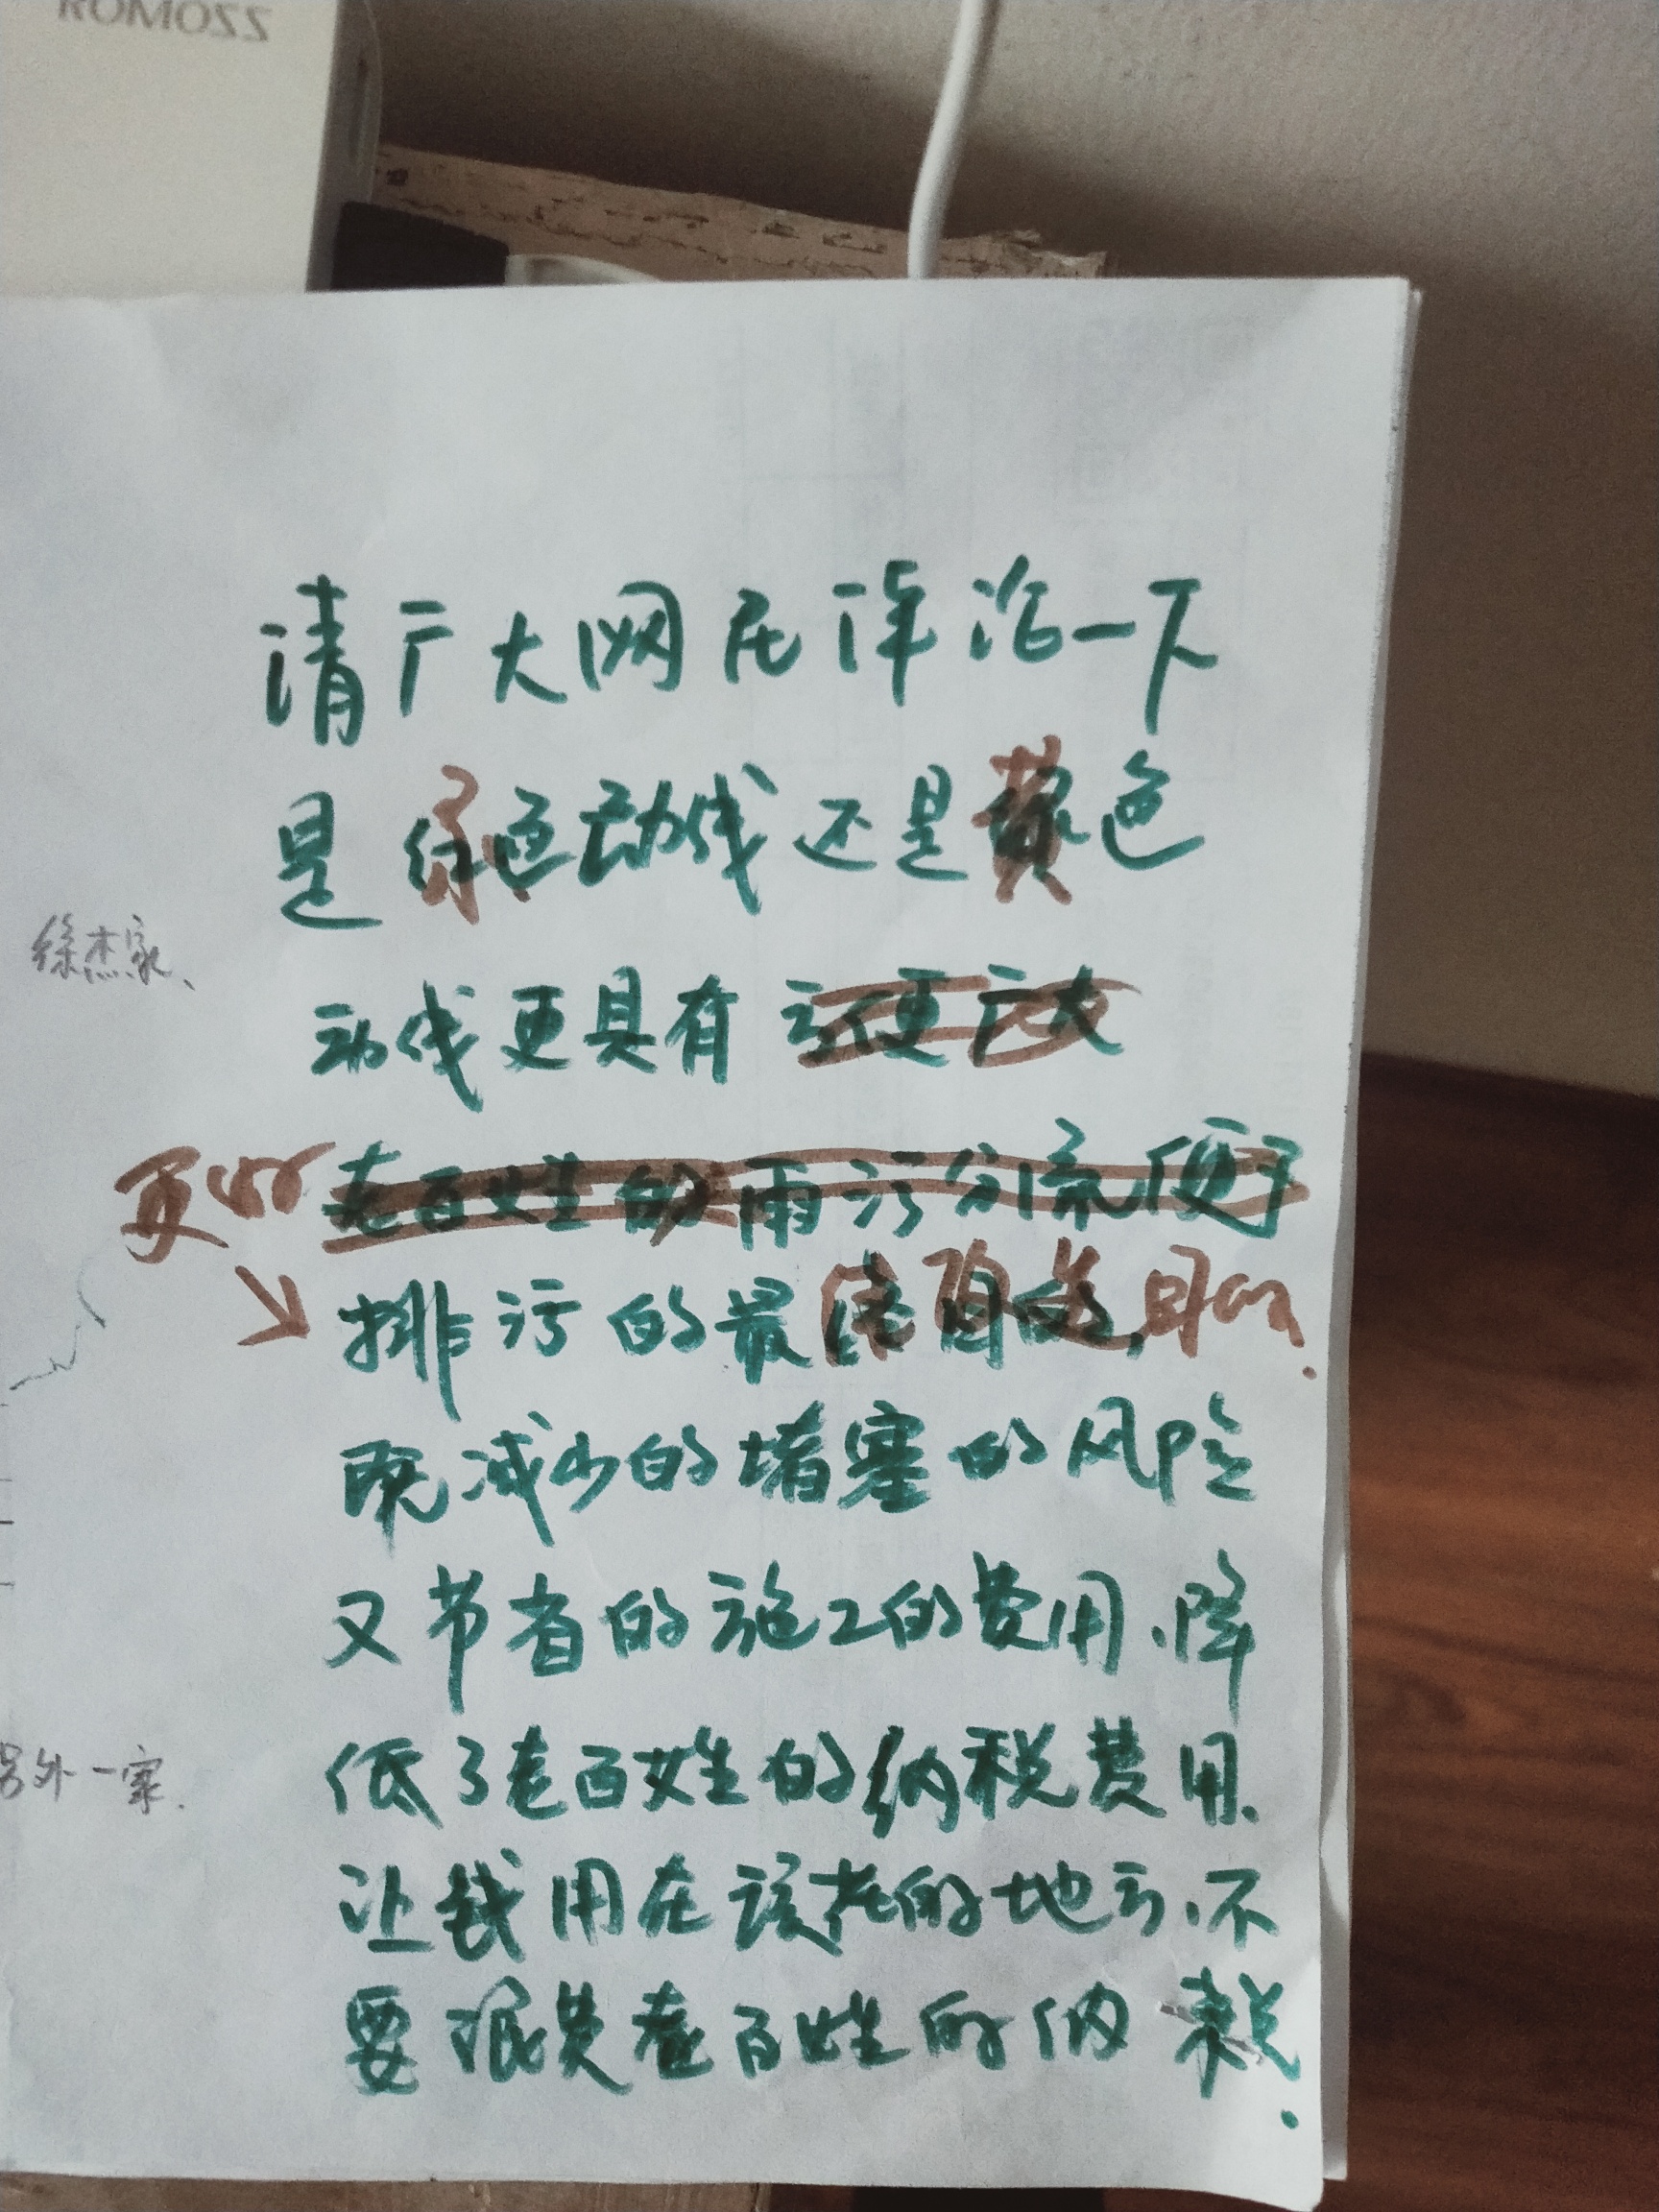 ROMOSS
请广大网民评论一下
是绿色动线还是黄色
徐杰家、
动线更具有方便广大
老百姓的雨污分流便于
更好
排污的最佳目的.
既减少的堵塞的风险
又节省的施工的费用、降
低了老百姓的纳税费用、
另外一家.
让钱用在该花的地方、不
要浪费老百姓的纳税.